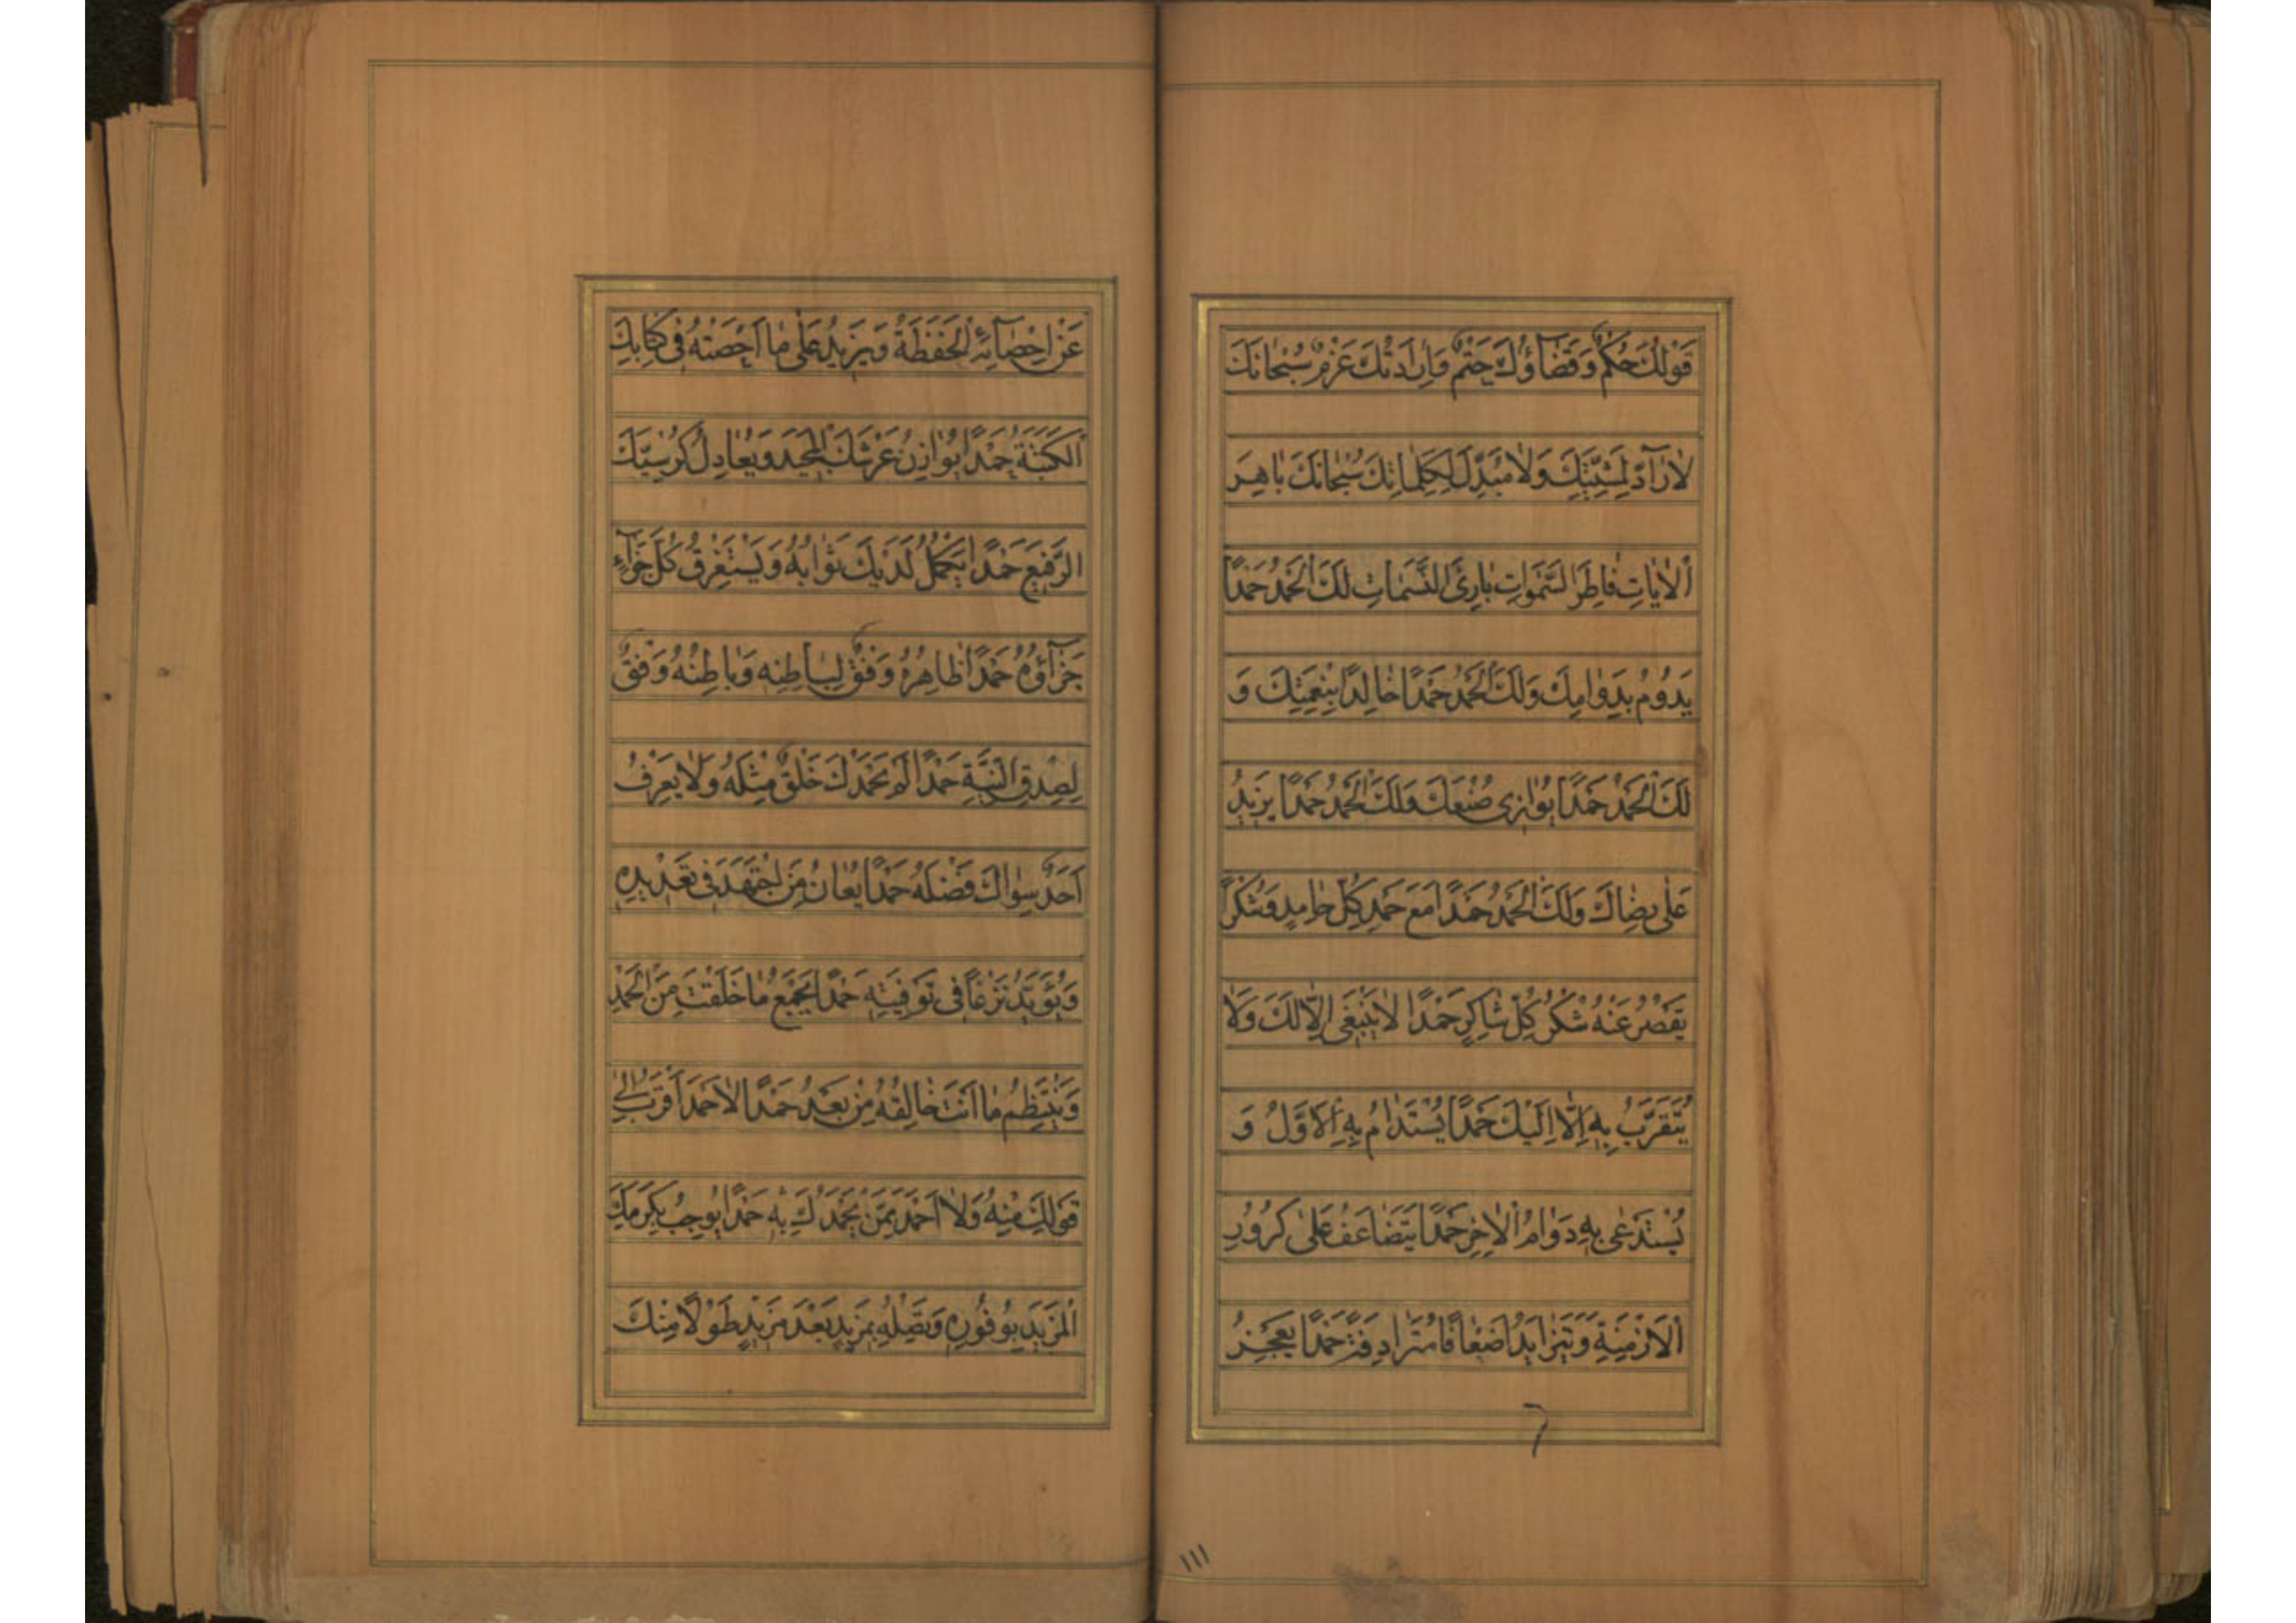 قَوْلُكَ حُكْمٌ وَقَضَآؤُكَ حَتْمٌ وَاِرَادَتُكَ عَزْمٌ سُبْحَانَكَ
لَارَآدَّ لِمَشِيَّتِكَ وَلَا مُبَدِّلَ لِكَلِمَاتِكَ سُبْحَانَكَ بَاهِرَ
اْلاٰيَاتِ فَاطِرَ السَّمٰوَاتِ بَارِئَ النَّسَمَاتِ لَكَ الْحَمْدُ حَمْدًا
يَدُومُ بِدَوَامِكَ وَلَكَ الْحَمْدُ حَمْدًا خَالِدًا بِنِعْمَتِكَ وَ
لَكَ الْحَمْدُ حَمْدًا يُوَازِى صُنْعَكَ وَلَكَ الْحَمْدُ حَمْدًا يَزِيدُ
عَلٰى رِضَاكَ وَلَكَ الْحَمْدُ حَمْدًا مَعَ حَمْدِ كُلِّ حَامِدٍ وَشُكْرًا
يَقْصُرُ عَنْهُ شُكْرُ كُلِّ شَاكِرٍ حَمْدًا لَا يَنْبَغِى اِلَّا لَكَ وَلَا
يُتَقَرَّبُ بِهِ اِلَّا اِلَيْكَ حَمْدًا يُسْتَدَامُ بِهِ اْلاَوَّلُ وَ
يُسْتَدْعٰى بِهِ دَوَامُ اْلاٰخِرِ حَمْدًا يَتَضَاعَفُ عَلٰى كُرُورِ
الْاَزْمِنَةِ وَيَتَزَايَدُ اَضْعَافًا مُتَرَادِفَةً حَمْدًا يَعْجِزُ
١١١
عَنْ اِحْصَآئِهِ الْحَفَظَةُ وَيَزِيدُ عَلٰى مَا اَحْصَتْهُ فِى كِتَابِكَ
الْكَتَبَةُ حَمْدًا يُوَازِنُ عَرْشَكَ الْمَجِيدَ وَيُعَادِلُ كُرْسِيَّكَ
الرَّفِيعَ حَمْدًا يَكْمُلُ لَدَيْكَ ثَوَابُهُ وَيَسْتَغْرِقُ كُلَّ جَزَآءٍ
جَزَآؤُهُ حَمْدًا ظَاهِرُهُ وَفْقٌ لِبَاطِنِهِ وَبَاطِنُهُ وَفْقٌ
لِصِدْقِ النِّيَّةِ حَمْدًا لَمْ يَحْمَدْكَ خَلْقٌ مِثْلَهُ وَلَا يَعْرِفُ
اَحَدٌ سِوَاكَ فَضْلَهُ حَمْدًا يُعَانُ مَنِ اجْتَهَدَ فِى تَعْدِيدِهِ
وَيُؤَيَّدُ نَزْعًا فِى تَوْفِيَتِهِ حَمْدًا يَجْمَعُ مَا خَلَقْتَ مِنَ الْحَمْدِ
وَيَنْتَظِمُ مَا اَنْتَ خَالِقُهُ مِنْ بَعْدُ حَمْدًا لَا حَمْدَ اَقْرَبُ اِلٰى
قَوْلِكَ مِنْهُ وَلَا اَحْمَدَ مِمَّنْ يَحْمَدُكَ بِهِ حَمْدًا يُوجِبُ بِكَرَمِكَ
الْمَزِيدَ بِوُفُورِهِ وَتَصِلُهُ بِمَزِيدٍ بَعْدَ مَزِيدٍ طَوْلًا مِنْكَ